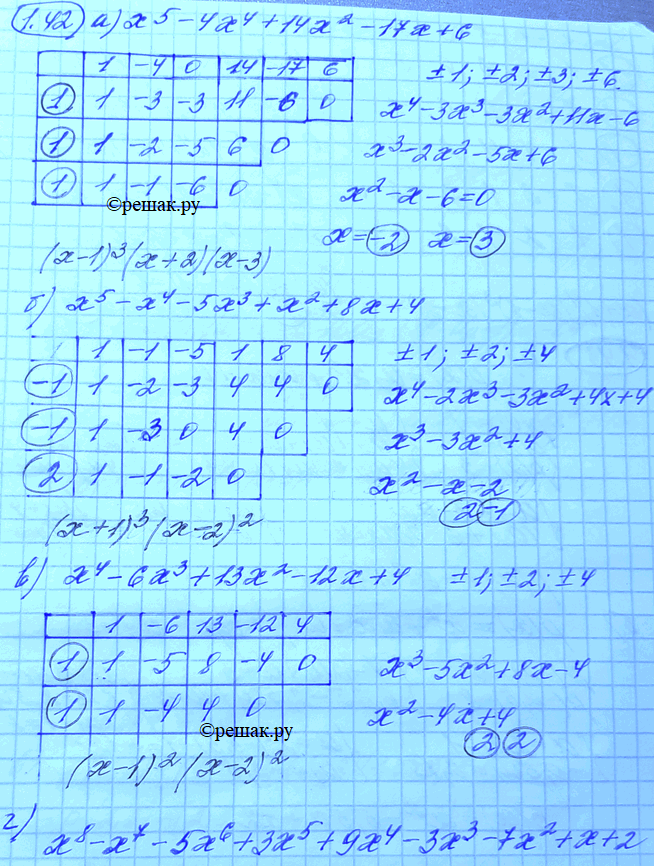 1.42) а) x⁵ - 4x⁴ + 14x² - 17x + 6
1 -4 0 14 -17 6
1 1 -3 -3 11 -6 0
1 1 -2 -5 6 0
1 1 -1 -6 0
©решак.ру
±1; ±2; ±3; ±6.
x⁴ - 3x³ - 3x² + 11x - 6
x³ - 2x² - 5x + 6
x² - x - 6 = 0
x = -2 x = 3
(x-1)³ (x+2)(x-3)
б) x⁵ - x⁴ - 5x³ + x² + 8x + 4
1 -1 -5 1 8 4
-1 1 -2 -3 4 4 0
-1 1 -3 0 4 0
2 1 -1 -2 0
±1; ±2; ±4
x⁴ - 2x³ - 3x² + 4x + 4
x³ - 3x² + 4
x² - x - 2
2 -1
(x+1)³ (x-2)²
в) x⁴ - 6x³ + 13x² - 12x + 4 ±1; ±2; ±4
1 -6 13 -12 4
1 1 -5 8 -4 0
1 1 -4 4 0
©решак.ру
x³ - 5x² + 8x - 4
x² - 4x + 4
2 2
(x-1)² (x-2)²
г) x⁸ - x⁷ - 5x⁶ + 3x⁵ + 9x⁴ - 3x³ - 7x² + x + 2